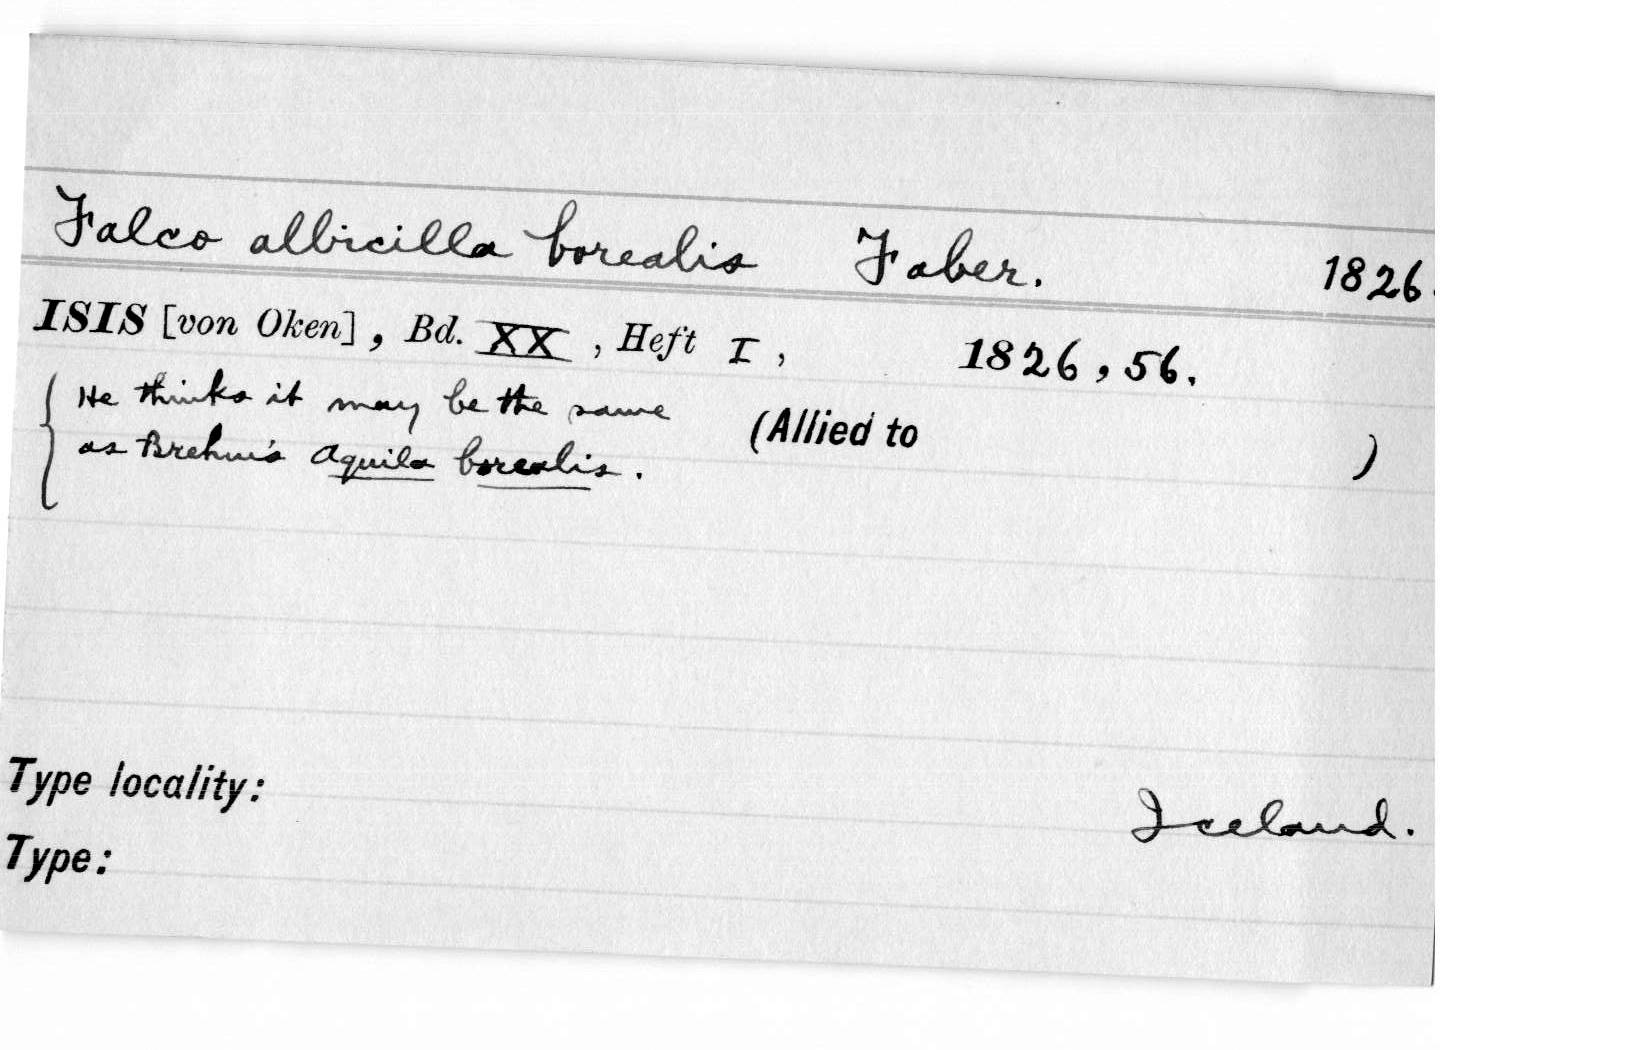 Falco albicilla borealis Faber. 1826.
ISIS [von Oken], Bd. XX, Heft I, 1826, 56.
He thinks it may be the same (Allied to )
as Brehm's Aquila borealis.
Type locality: Iceland.
Type: